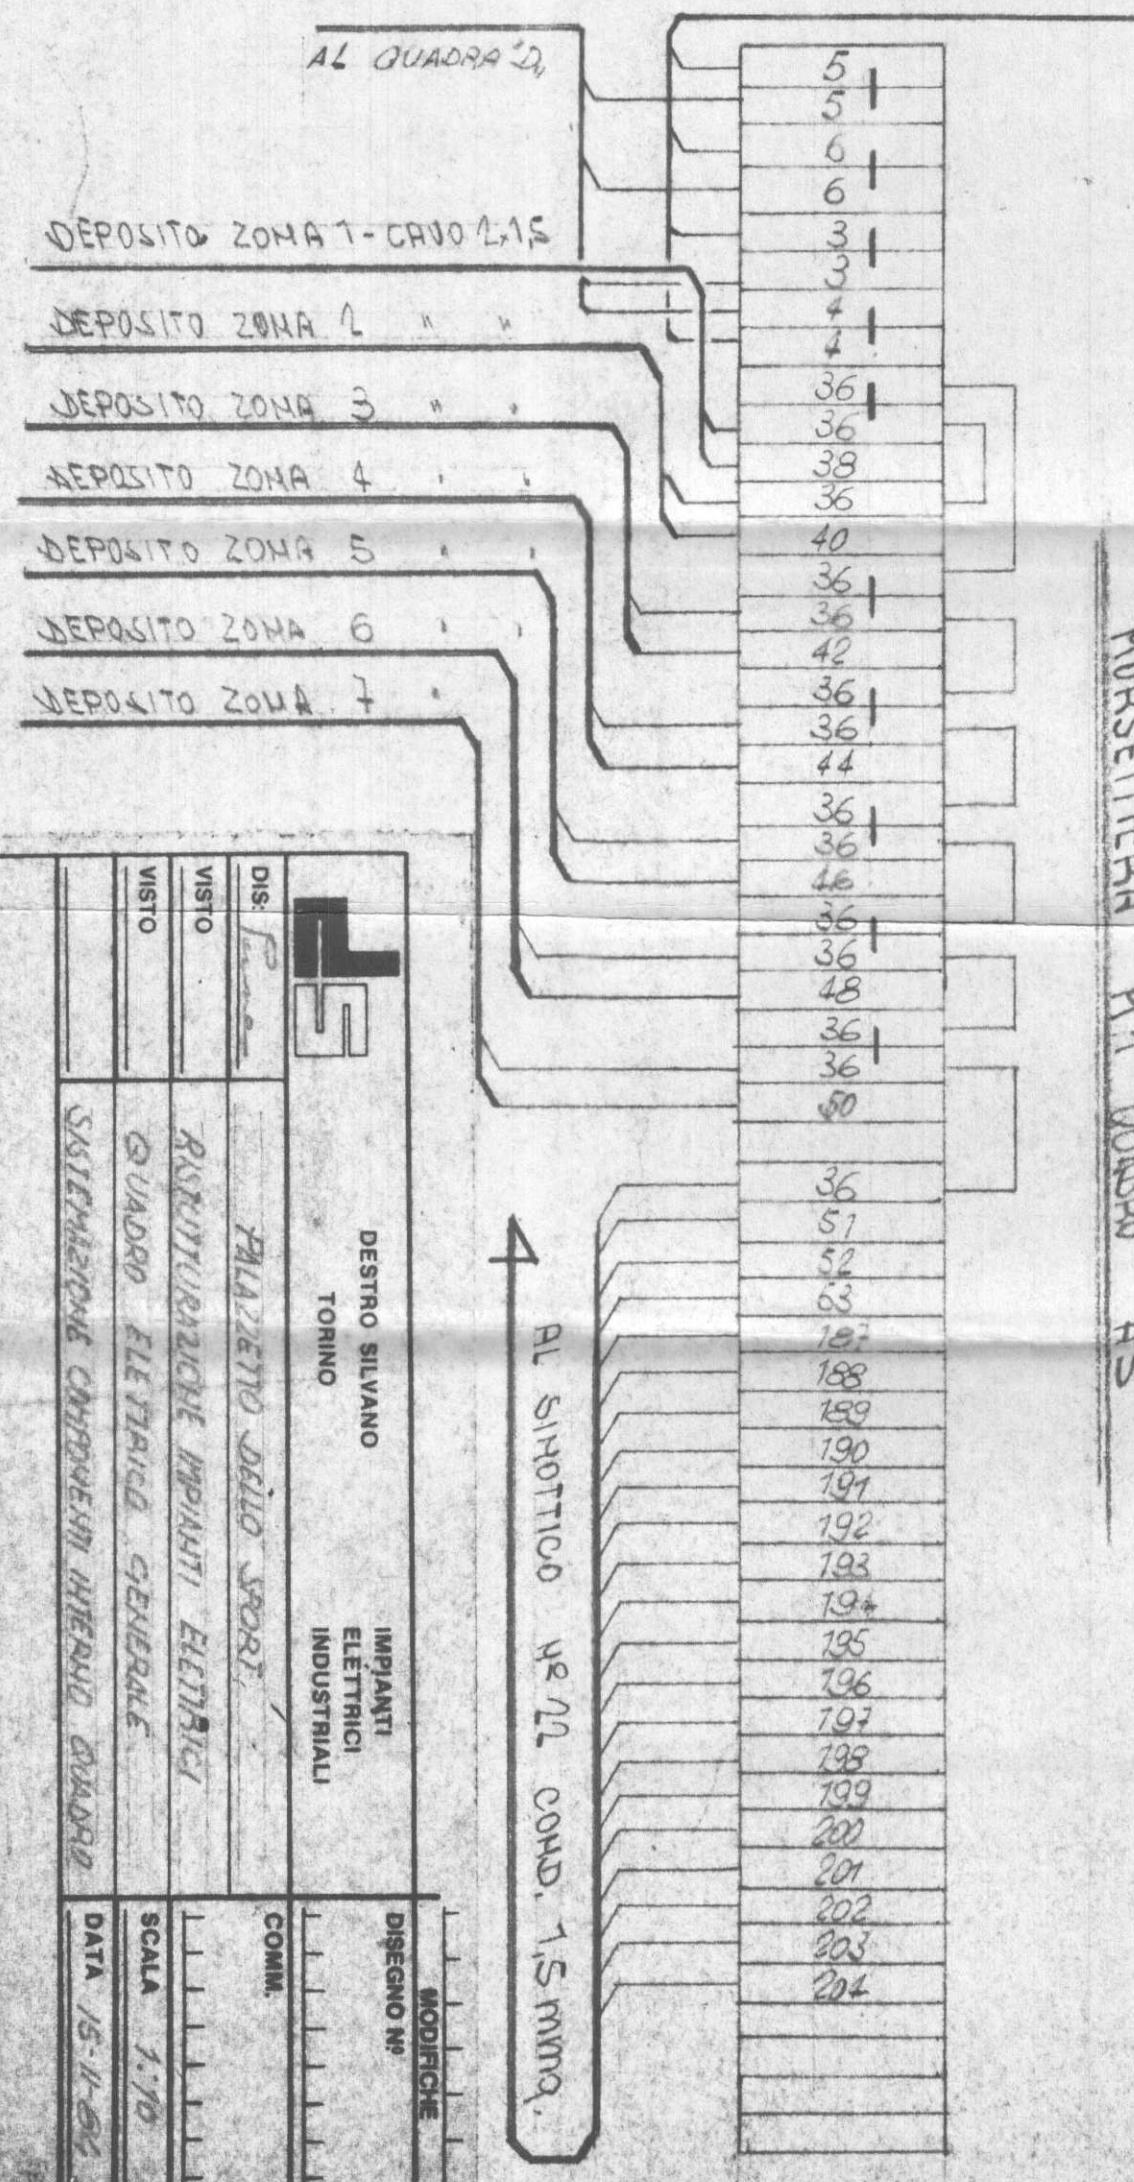 AL QUADRA "D"
DEPOSITO ZONA 1 - CAVO 2x1,5
DEPOSITO ZONA 2 " "
DEPOSITO ZONA 3 " "
DEPOSITO ZONA 4 " "
DEPOSITO ZONA 5 " "
DEPOSITO ZONA 6 " "
DEPOSITO ZONA 7 "
5
5
6
6
3
3
4
4
36
36
38
36
40
36
36
42
36
36
44
36
36
46
36
36
48
36
36
50
36
51
52
53
187
188
189
190
191
192
193
194
195
196
197
198
199
200
201
202
203
204
MORSETTIERA QUADRO
AL SINOTTICO NR 22 COND. 1,5 mmq.
DESTRO SILVANO
TORINO
IMPIANTI
ELETTRICI
INDUSTRIALI
DIS:
VISTO
VISTO
PALAZZETTO DELLO SPORT
RISTUTTURAZIONE IMPIANTI ELETTRICI
QUADRO ELETTRICO GENERALE
SISTEMAZIONE COMPONENTI INTERNO QUADRO
MODIFICHE
DISEGNO N°
COMM.
SCALA 1:10
DATA 15-11-